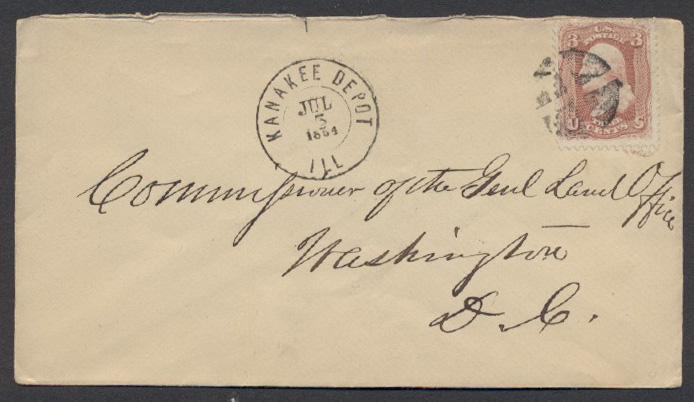 KANAKEE DEPOT
JUL
5
1864
ILL
3 U.S. 3
POSTAGE
U CENTS S
Commissioner of the Genl Land Office
Washington
D. C.